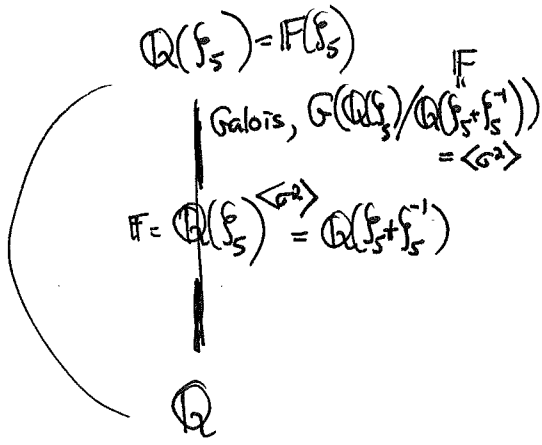 ℚ(ζ₅) = 𝔽(ζ₅)
Galois, G(ℚ(ζ₅)/ℚ(ζ₅+ζ₅⁻¹))
𝔽
"
= <σ²>
𝔽 = ℚ(ζ₅)^<σ²> = ℚ(ζ₅+ζ₅⁻¹)
ℚ